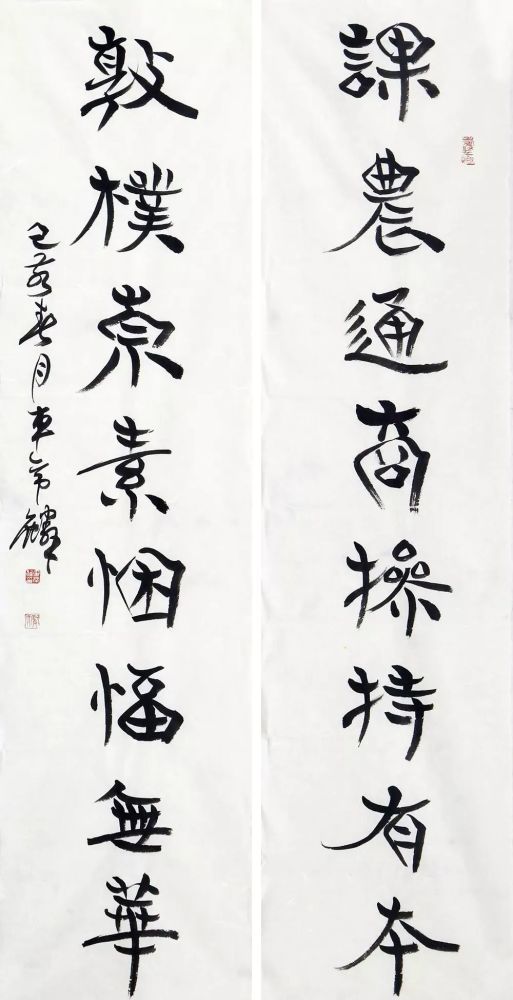 課農通商操持有本
敦樸崇素悃愊無華
己亥春月車